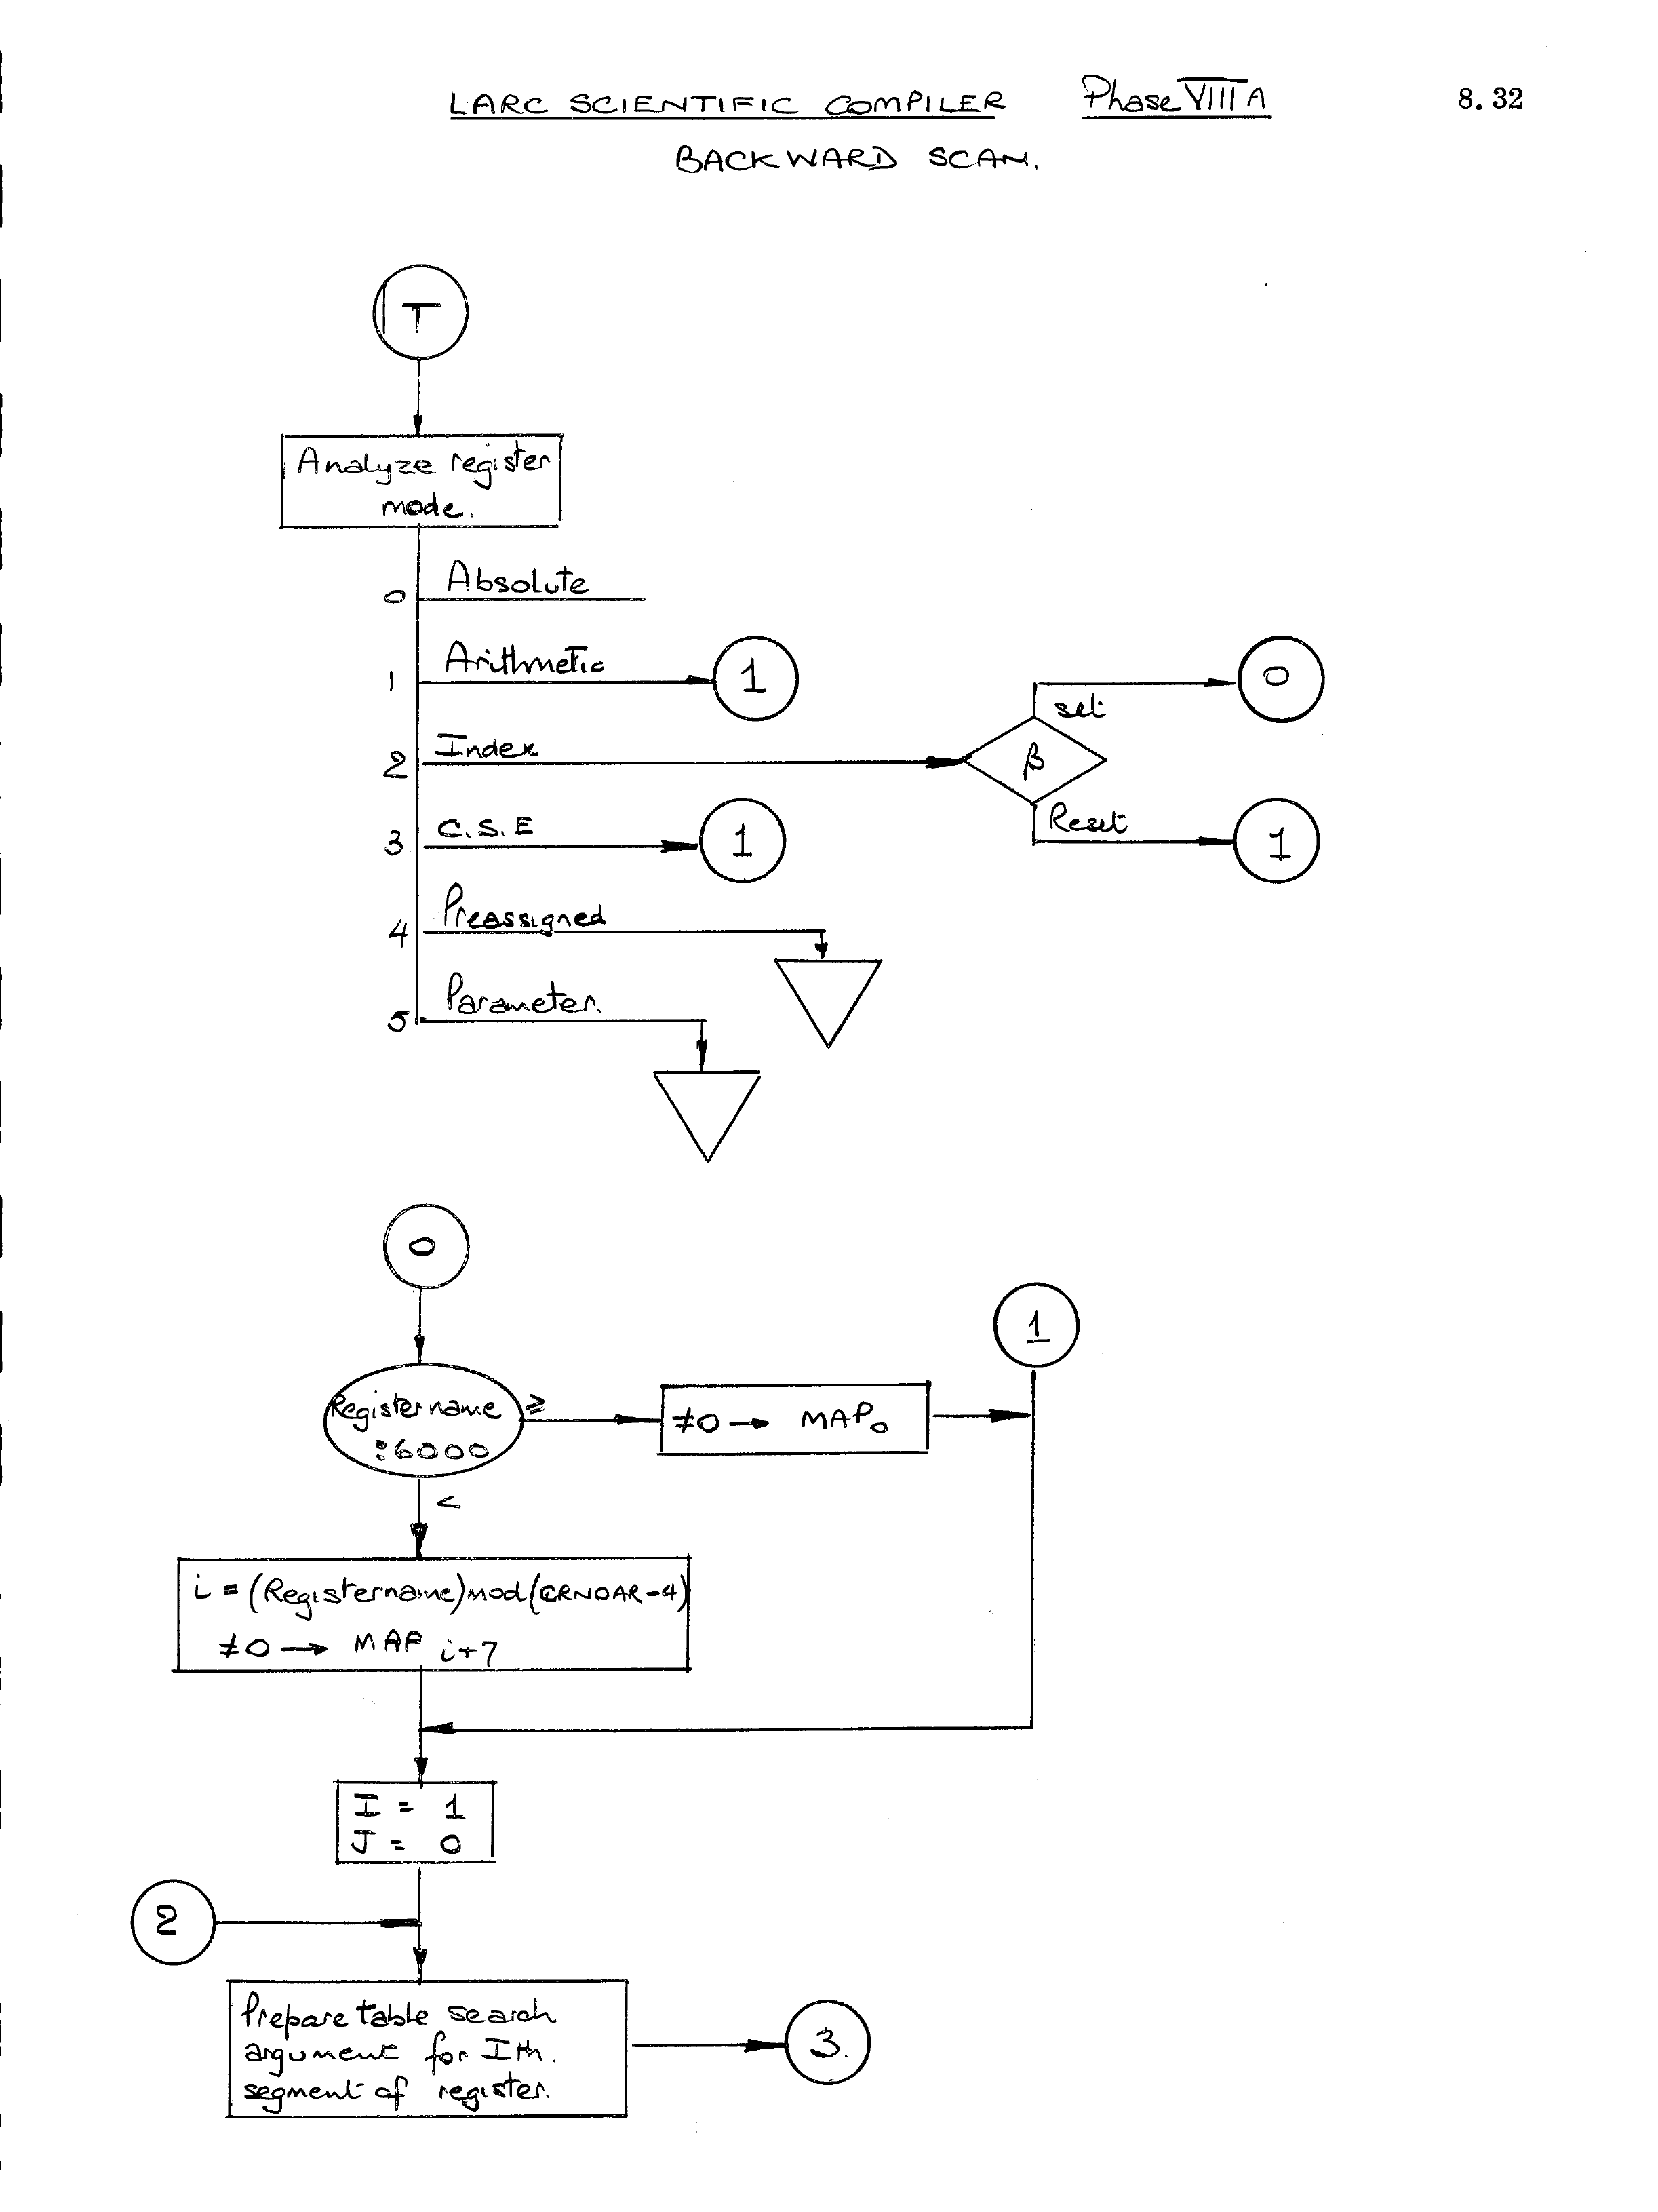 LARC SCIENTIFIC COMPILER Phase VIII A 8.32
BACKWARD SCAN.
T
Analyze register
mode.
0 Absolute
1 Arithmetic 1
0
set
2 Index β
Reset
3 C.S.E 1 1
4 Preassigned
5 Parameter.
0
1
Registername ≥
:6000
≠0 → MAP0
<
i = (Registername)mod(CRNOAR-4)
≠0 → MAP i+7
I = 1
J = 0
2
Prepare table search
argument for Ith.
segment of register.
3.